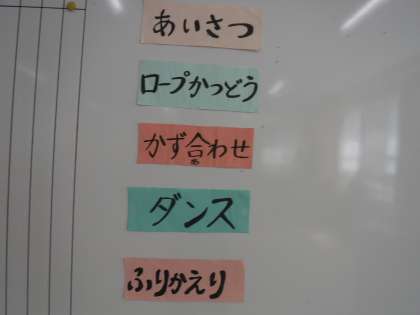 あいさつ
ロープかつどう
かず合わせ
あ
ダンス
ふりかえり